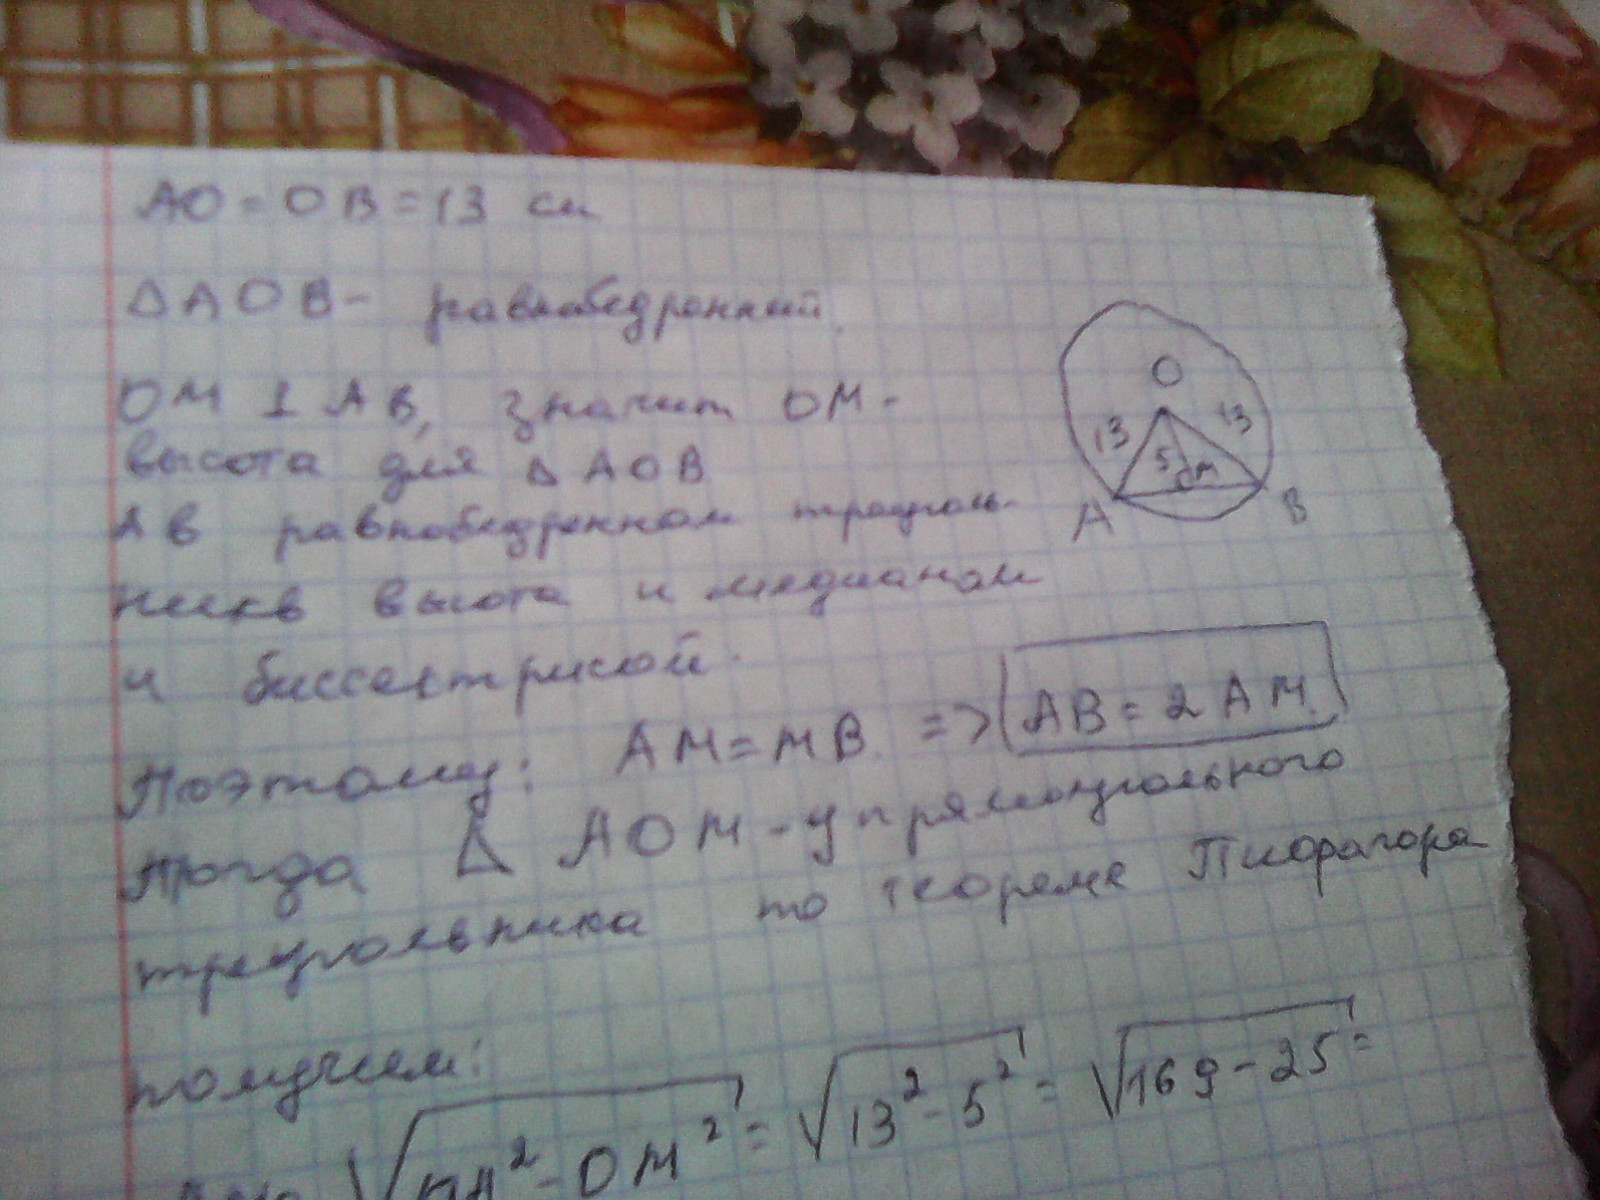 AO = OB = 13 см
△AOB - равнобедренный.
OM ⊥ AB, значит OM -
высота для △AOB
А в равнобедренном треуголь-
нике высота и медианой
и биссектрисой.
Поэтому: AM = MB. => AB = 2AM.
Тогда △ AOM - у прямоугольного
треугольника по теореме Пифагора
получим:
√OA² - OM² = √13² - 5² = √169 - 25 =
O
13
13
5
M
A
B